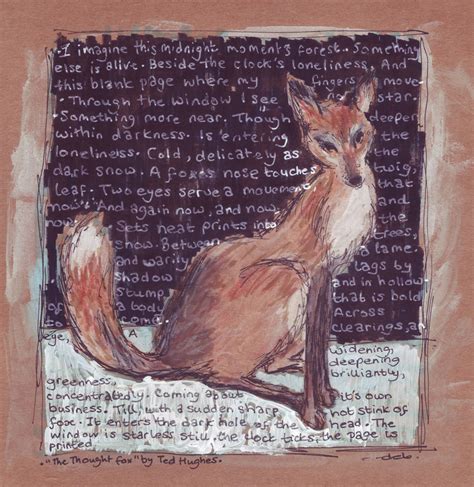 . I imagine this midnight moment's forest. Something
else is alive. Beside the clock's loneliness, And
this blank page where my fingers move
. Through the window I see star.
Something more near. Though deeper
within darkness. Is entering the
loneliness. Cold, delicately as the
dark snow, A fox's nose touches twig,
leaf. Two eyes serve a movement, that
now. And again now, and now, and
Sets neat prints into the
snow. Between trees,
and warily a lame.
shadow lags by
stump and in hollow
of a body that is bold
to come. Across
eye, A clearings, an
widening,
deepening
greenness, brilliantly,
concentratedly. Coming about it's own
business. Till, with a sudden sharp hot stink of
fox. It enters the dark hole of the head. The
window is starless still. the clock ticks, the page is
printed.
. "The Thought Fox" by Ted Hughes.